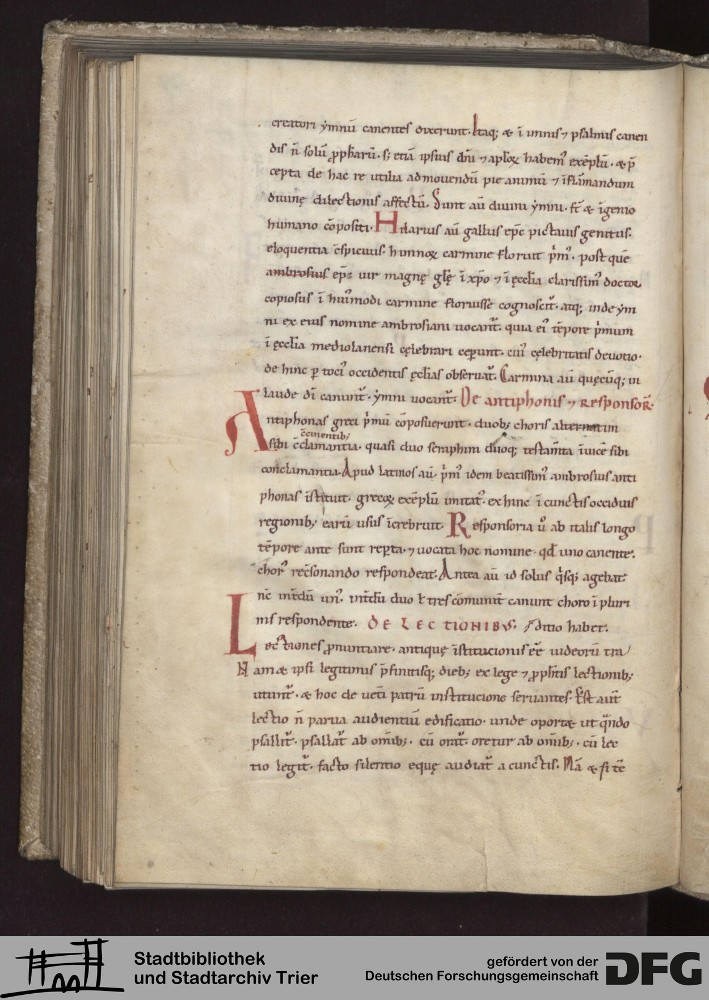 creatori ẏmnū canentes dixerunt. Itaq; & ī imnis ⁊ psalmis canen
dis n̄ solū ꝓph̄arū. s; etiā ipsius dn̄i ⁊ aplōꝝ habemꝰ exēplū. & p̄
cepta de hac re utilia ad mouendū pie animū ⁊ īflāmandum
diuinę dilectionis affectū. Sunt aū diuini ẏmni. st̄ & īgenio
humano cōpositi. Hilarius aū gallus ep̄c pictauis genitus.
eloquentia cōspicuus. himnoꝝ carmine floruit p̄mꝰ. post quē
ambrosius ep̄c uir magnę glę̄ ī xp̄o ⁊ ī ęcclia clarissimꝰ doctor
copiosus ī huiꝰmodi carmine floruisse cognoscit᷑. atq; inde ẏm
ni ex eius nomine ambrosiani uocant᷑. quia eiꝰ tēpore p̄mum
ī ęcclia mediolanensi cęlebrari cęperunt. cuiꝰ cęlebritatis deuotio
de hinc ꝑ totiꝰ occidentis ęclias obseruat᷑. Carmina aū quęcūq; in
laude dī canunt᷑. ẏmni uocant᷑. De antiphonis ⁊ responsor̄.
Antiphonas greci p̄mū cōposuerunt. duob; choris alternatim
c̄cinentib;
sibi c̄clamantia. quasi duo seraphim duoq; testam̄ta īuicē sibi
conclamantia. Apud latinos aū. p̄mꝰ idem beatissimꝰ ambrosius anti
phonas īstituit. grecoꝝ exēplū imitatꝰ. ex hinc ī cunctis occiduis
regionib; earū usus īcrebruit. Responsoria ū ab italis longo
tēpore ante sunt rep̄ta. ⁊ uocata hoc nomine. qd̄ uno canente.
chorꝰ cōsonando respondeat. Antea aū id solus q̄sq; agebat.
nc̄ int̄dū unꝰ. int̄dū duo ł tres cōmunit̄ canunt choro ī pluri
mis respondente. DE LECTIONIBVS. ditio habet.
Lectiones ꝓnuntiare. antiquę īstitucionis eē̄ iudeorū tra
Nam & ipsi legitimis p̄finitisq; dieb; ex lege ⁊ ꝓph̄tis lectionib;
utunt᷑. & hoc de uet̄i patrū institucione seruantes. Est aut̄
lectio n̄ parua audientiū edificatio. unde oport& ut q̄ndo
psallit᷑. psallat᷑ ab omīb;. cū orat᷑. oretur ab omīb;. cū lec
tio legit᷑. facto silentio equę audiat᷑ a cunctis. Nā & si tc̄
Stadtbibliothek
und Stadtarchiv Trier
gefördert von der
Deutschen Forschungsgemeinschaft
DFG